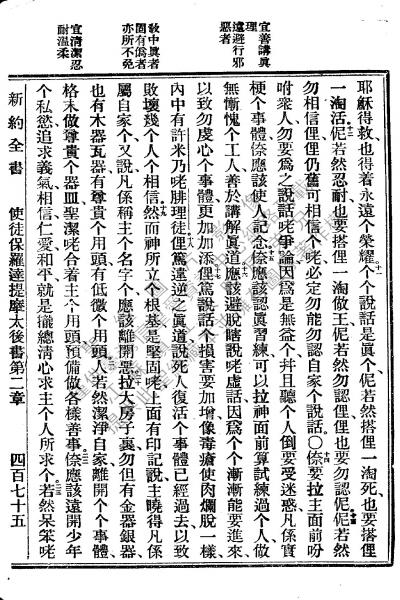 宜善講眞
理
遠避行邪
惡者
教中眞者
固有僞者
亦所不免
宜清潔忍
耐溫柔
耶穌得救也得着永遠个榮耀十一个个說話是眞个伲若然搭俚一淘死也要搭俚
一淘活十二伲若然忍耐也要搭俚一淘做王伲若然勿認俚俚也要勿認伲十三伲若然
勿相信俚俚仍舊可相信个咾必定勿能勿認自家个說話〇十四㑚要拉主面前吩
咐衆人勿要爲之說話咾爭論因爲是無益个幷且聽个人倒要受迷惑凡係實
梗个事體㑚應該使人記念十五㑚應該認眞習練可以拉神面前算試練過个人做
無慚愧个工人善於講解眞道十六應該避脫瞎說咾虛話因爲个个漸漸能要進來
以致勿虔心个事體更加加添十七俚篤說話个損害要加增像毒瘡使肉爛脫一樣
內中有許米乃咾腓理徒十八俚篤違逆之眞道說死人復活个事體已經過去以致
敗壞幾个人个相信十九然而神所立个根基是堅固咾上面有印記說主曉得凡係
屬自家个又說凡係稱主个名字个應該離開惡二十拉大房子裏勿但有金器銀器
也有木器瓦器有尊貴个用頭有低微个用頭二一人若然潔淨自家離開个个事體
格末做尊貴个器皿聖潔咾合着主个用頭預備做各樣善事二二㑚應該遠開少年
个私慾追求義氣相信仁愛和平就是攏總清心求主个人所求个二三若然呆笨咾
新約全書 使徒保羅達提摩太後書第二章 四百七十五